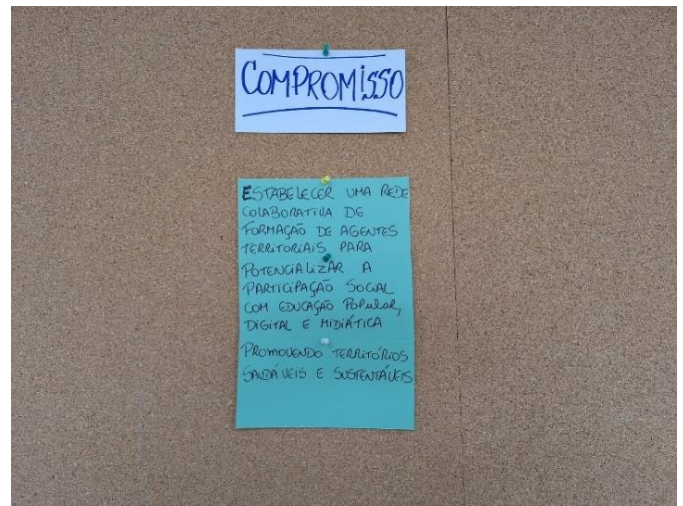 COMPROMISSO
ESTABELECER UMA REDE
COLABORATIVA DE
FORMAÇÃO DE AGENTES
TERRITORIAIS PARA
POTENCIALIZAR A
PARTICIPAÇÃO SOCIAL
COM EDUCAÇÃO POPULAR,
DIGITAL E MIDIÁTICA
PROMOVENDO TERRITÓRIOS
SAUDÁVEIS E SUSTENTÁVEIS